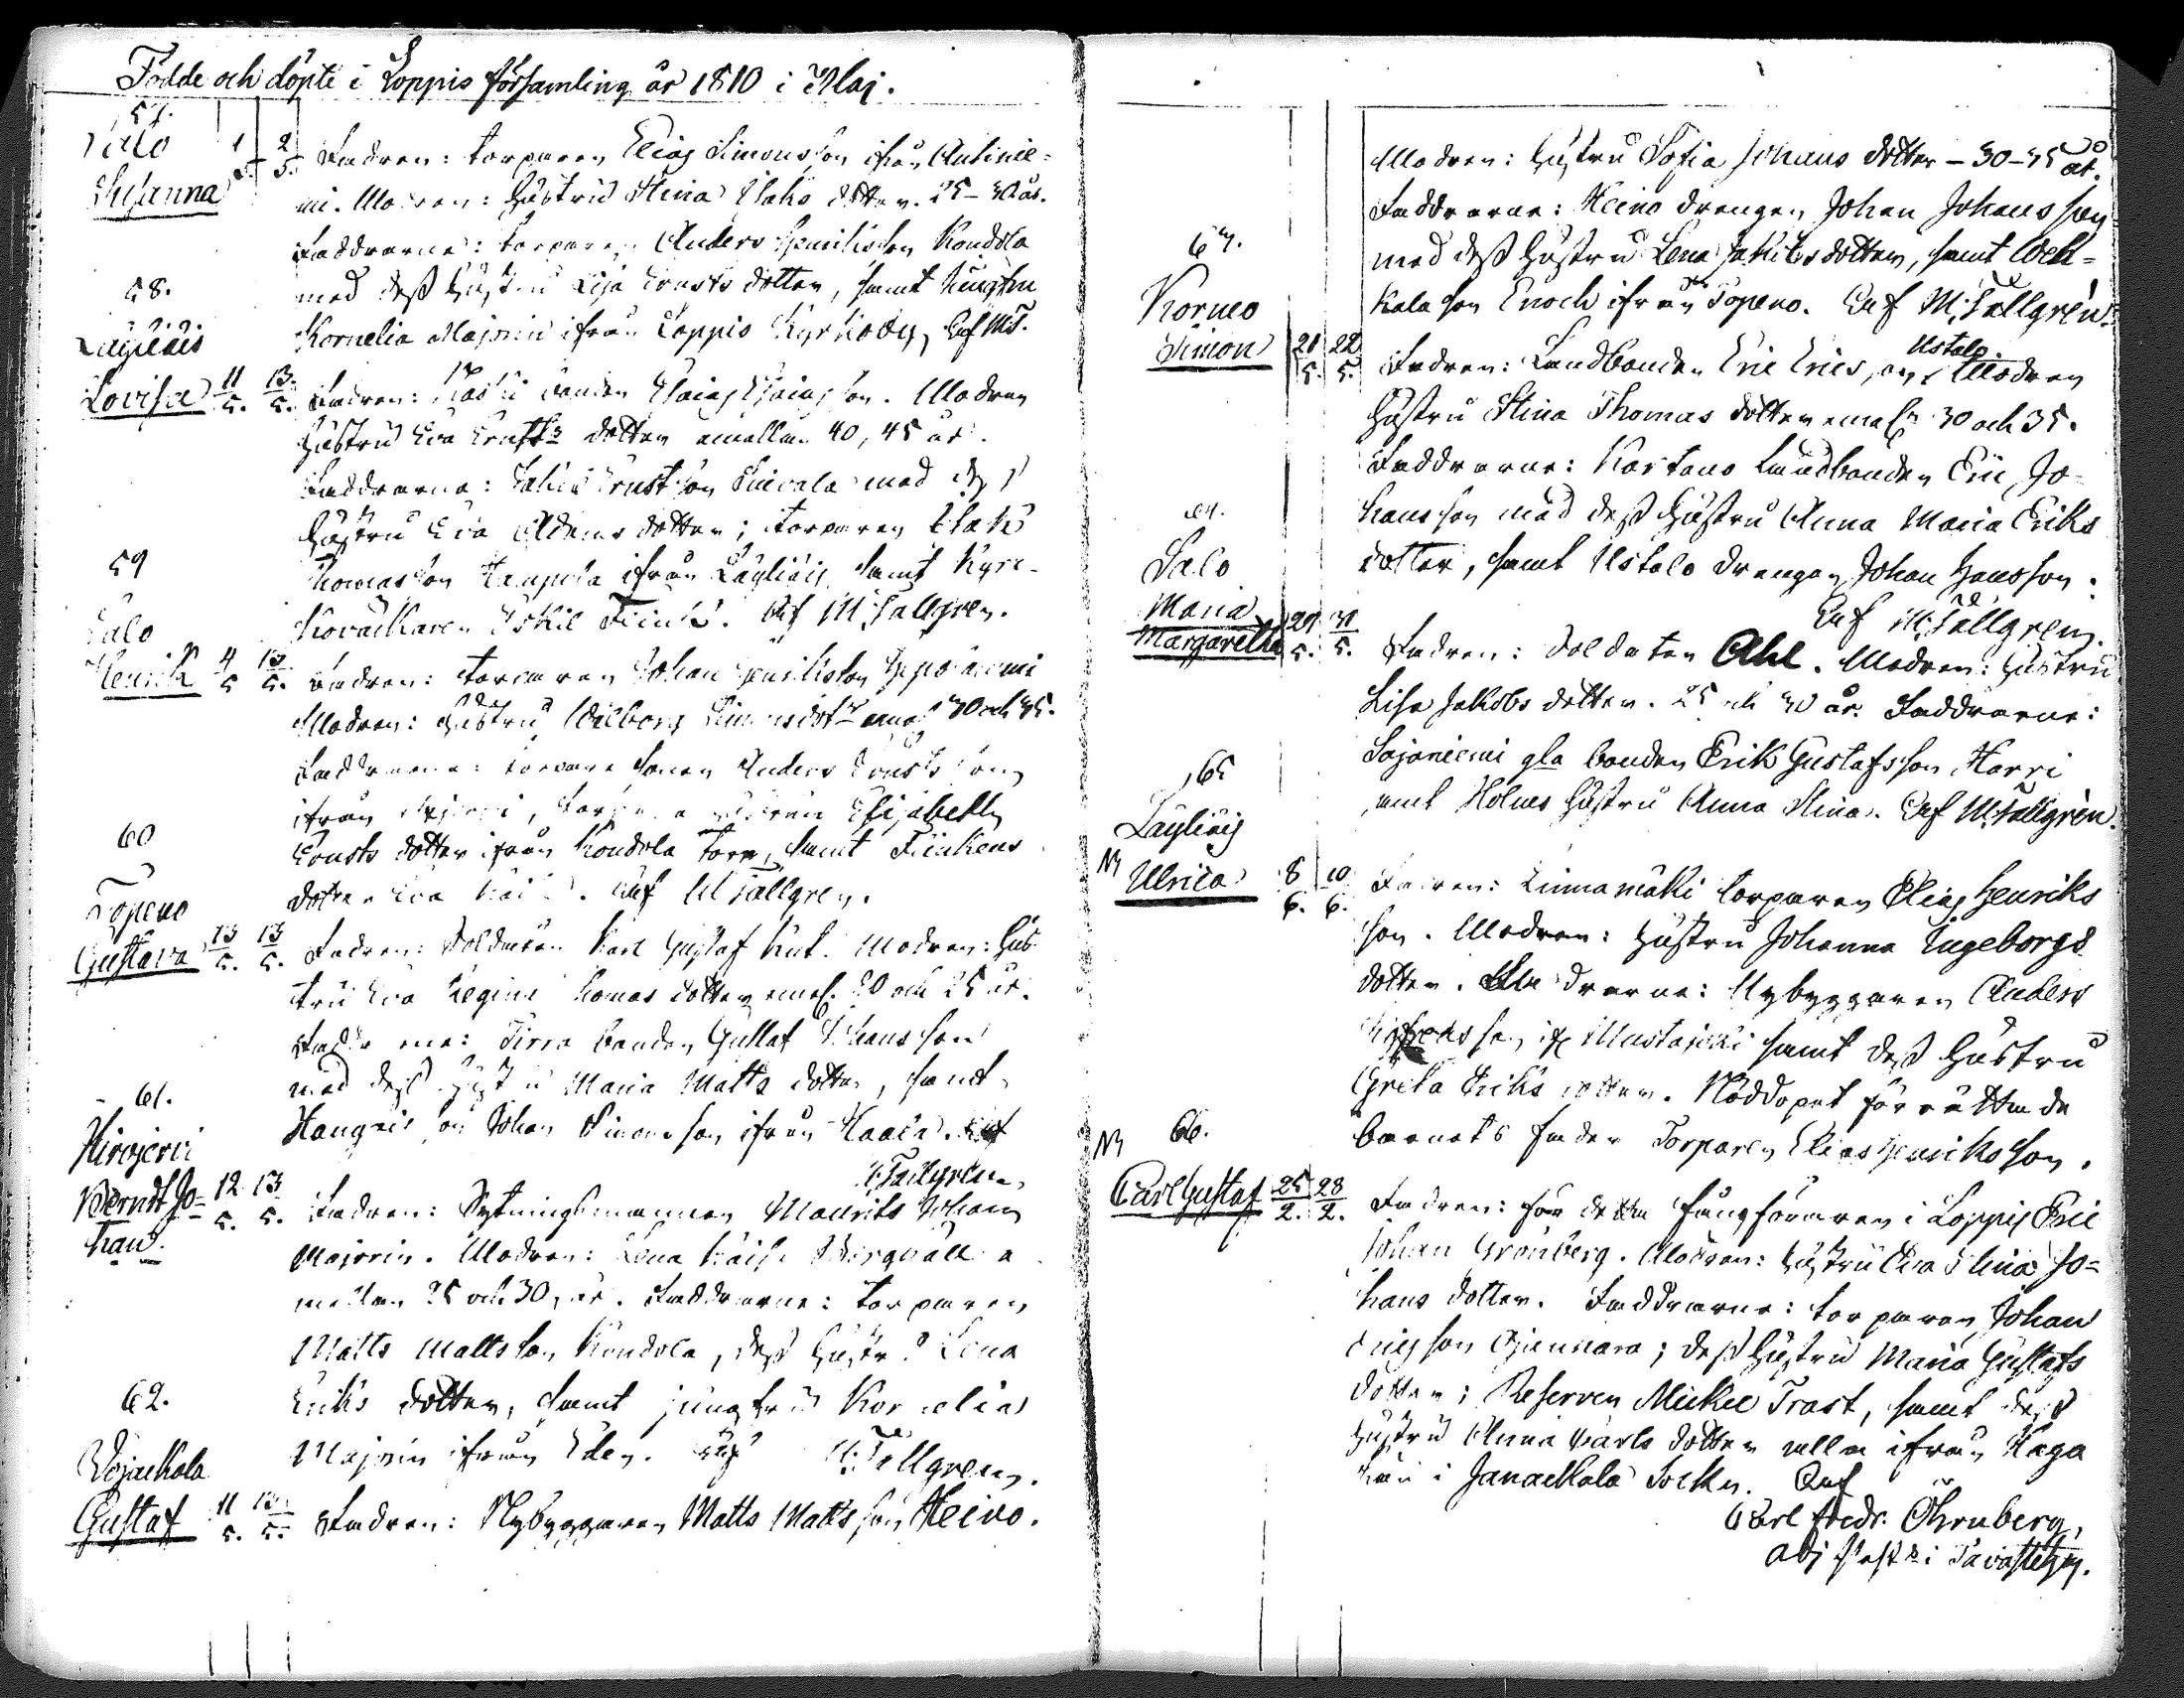 Födde och döpte i Loppis församling år 1810 i Maj.
57.
Salo
Susanna
1 2
5. 5.
Fadren: torparen Elias Simonsson ifrån Antinie-
mi. Modren: Hustru Stina Isaks dotter. 25-30 år.
Faddrarne: torparen Anders Henriksson Kondola
med dess Hustru Lisa Ernsts dotter, samt Jungfru
Kornelia Majorin ifrån Loppis Kyrkoby
58.
Läyliäis
Lovisa
11 13
5. 5.
Fadren: bonden Esaias Esaias son. Modren
Hustru Eva Ernsts dotter emellan 40, 45 år.
Faddrarne: Ernst son med dess
Hustru Eva Adams dotter; torparen Isak
Thomasson ifrån Läyliäis samt Kyrc-
koväcktaren Eskil Fiink. M: Tallgren.
59
Salo
Henrik
4 13
5 5.
Fadren: torparen Johan Henriksson
Modren: Hustru Walborg Simonsdotr 30 och 35.
Faddrarne: torpare sonen Anders Ernsts son
ifrån Elisabeth
Ernsts dotter ifrån Kondola torp, samt Fiinkens
dotter Eva M Tallgren.
60
Topeno
Gustava
13 13
5. 5.
Fadren: Soldaten Karl Gustaf Modren: Hus
tru Eva Regina Thomas dotter emel. 20 och 25 år.
Faddrarne: Pirra bonden Gustaf Johansson
med dess Hustru Maria Matts dotter, samt
son Johan Simonsson ifrån
M: Tallgren.
61.
Hirvijervi
Berndt Jo=
han.
12 13
5. 5.
Fadren: Sytningsmannen Maurits Johan
Majorin. Modren: Lena Kaisa e
mellan 25 och 30 år. Faddrarne: torparen
Matts Mattsson Kondola, dess Hustru Lena
Eriks dotter, samt jungfru Kornelia
Majorin ifrån M: Tallgren.
62.
Wojackala
Gustaf
11 13
5. 5.
Fadren: Nybyggaren Matts Mattsson Heino.
Modren: Hustru Sofia Johans dotter - 30-35 år.
Faddrarne: Heino drengen Johan Johansson
med dess Hustru Lena Jakobsdotter, samt
kala son Enoch ifrån Topeno. M: Tallgrèn.
63.
Kormo
Simon
21 22
5. 5.
Fadren: Landbonden Eric Ericsson Ustalo Modren
Hustru Stina Thomas dotter emel: 30 och 35.
Faddrarne: Kartano Landbonden Eric Jo-
hansson med dess Hustru Anna Maria Eriks
dotter, samt Ustalo drengen Johan Hansson.
M: Tallgren.
64.
Salo
Maria
Margaretha
29 31
5. 5.
Fadren: Soldaten Ahl. Modren: Hustru
Lisa Jakobs dotter. 25 och 30 år. Faddrarne:
Sajaniemi gla bonden Erik Gustafsson Harri
samt Holmes Hustru Anna Stina. M: Tallgrèn.
65
Läyliäis
N
Ulrica
8 10
6. 6.
Fadren: Linnamäki torparen Elias Henriks
son. Modren: Hustru Johanna Ingeborgs
dotter. Faddrarne: Nybyggaren Anders
Mustajoki samt dess Hustru
Greta Eriks dotter. Nöddopet förrättade
barnets fader Torparen Elias Henriksson.
N
66.
Carl Gustaf
25 28
2. 2.
Fadren: för detta fångföraren i Loppis Eric
Johan Grönberg. Modren: Hustru Eva Stina Jo=
hans dotter. Faddrarne: torparen Johan
Ericsson Ojennara; dess Hustru Maria Gustafs
dotter; Reserven Mickel Trast, samt dess
Hustru Anna Carls dotter alla ifrån Haga
i Janackala Sockn.
Carl Fredr. Öhrnberg,
adj i Tavastehus.